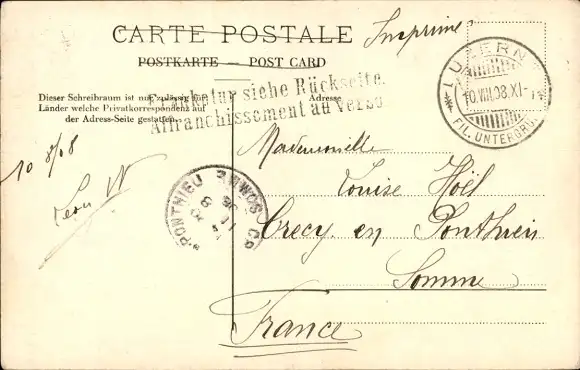 CARTE POSTALE
Imprimé
POSTKARTE — POST CARD
Dieser Schreibraum ist nur zulässig für
Länder welche Privatkorrespondenz auf
der Adress-Seite gestatten.
Adresse
Frankatur siehe Rückseite.
Affranchissement au verso
LUZERN
10.VIII.08.XI-
FIL. UNTERGRUND
10 8/08
Léon W
CRECY PONTHIEU SOMME
Mademoiselle
Louise Hoël
Crecy en Ponthieu
Somme
France